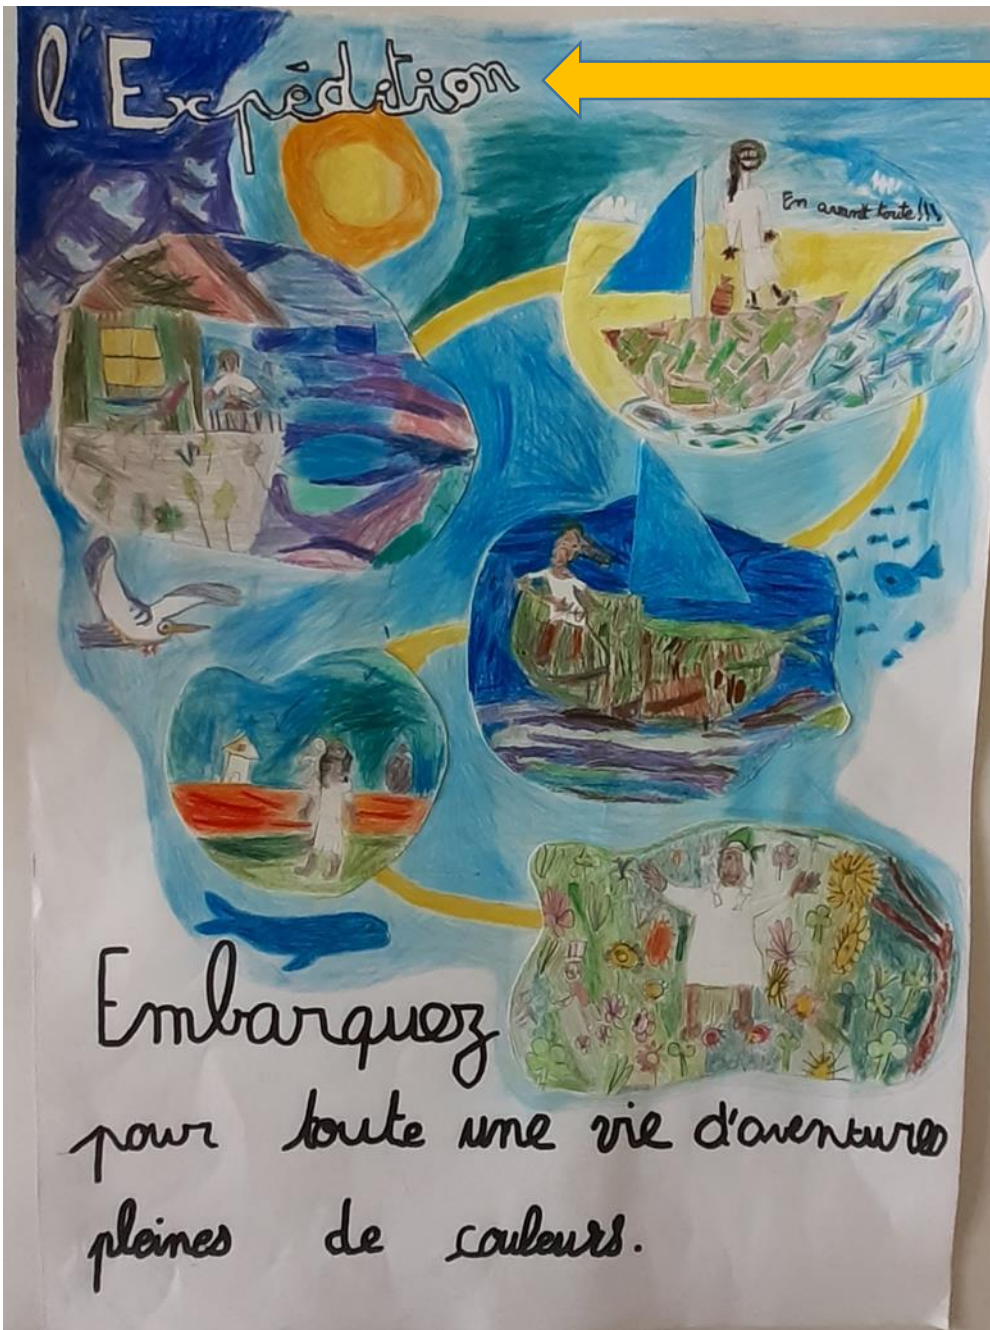 l'Expédition
En avant toute!!!
Embarquez
pour toute une vie d'aventures
pleines de couleurs.